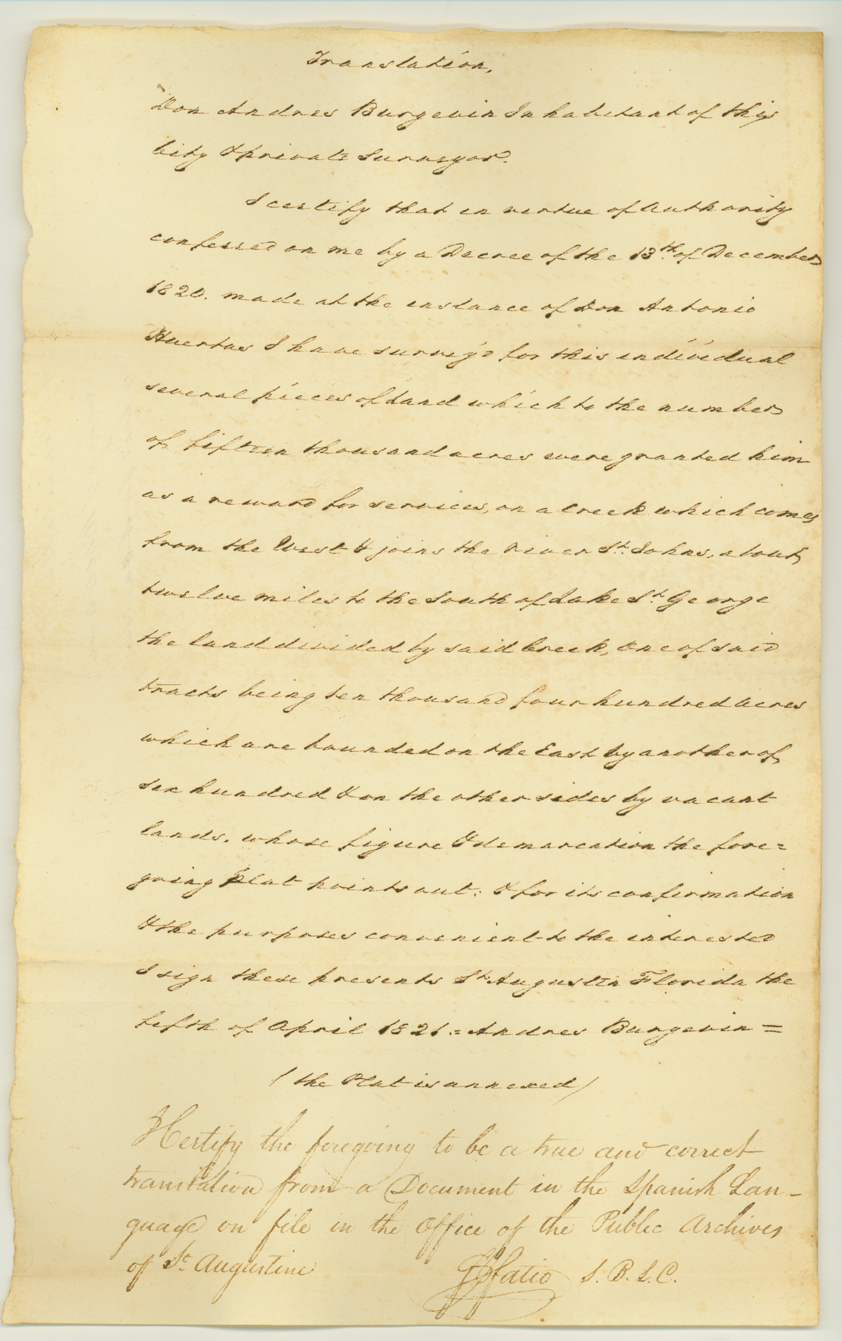 Translation,
Don Andres Burgevin Inhabitant of this
City & private Surveyor.
I certify that in virtue of Authority
conferred on me by a Decree of the 13th of December
1820. made at the instance of Don Antonio
Huertas I have survey'd for this individual
several pieces of Land which to the number
of fifteen thousand acres were granted him
as a reward for services, on a Creek which comes
from the West & joins the River St. Johns, about
twelve miles to the South of Lake St. George
the land divided by said Creek, One of said
tracts being ten thousand four hundred Acres
which are bounded on the East by another of
six hundred & on the other sides by vacant
lands. whose figure & demarcation the fore=
going Plat points out: & for its confirmation
& the purposes convenient to the interested
I sign these presents St. Augustin Florida the
fifth of April 1821 = Andres Burgevin =
(the Plat is annexed)
I Certify the foregoing to be a true and correct
translation from a Document in the Spanish Lan-
guage on file in the Office of the Public Archives
of St. Augustine
Fatio S. B. L. C.